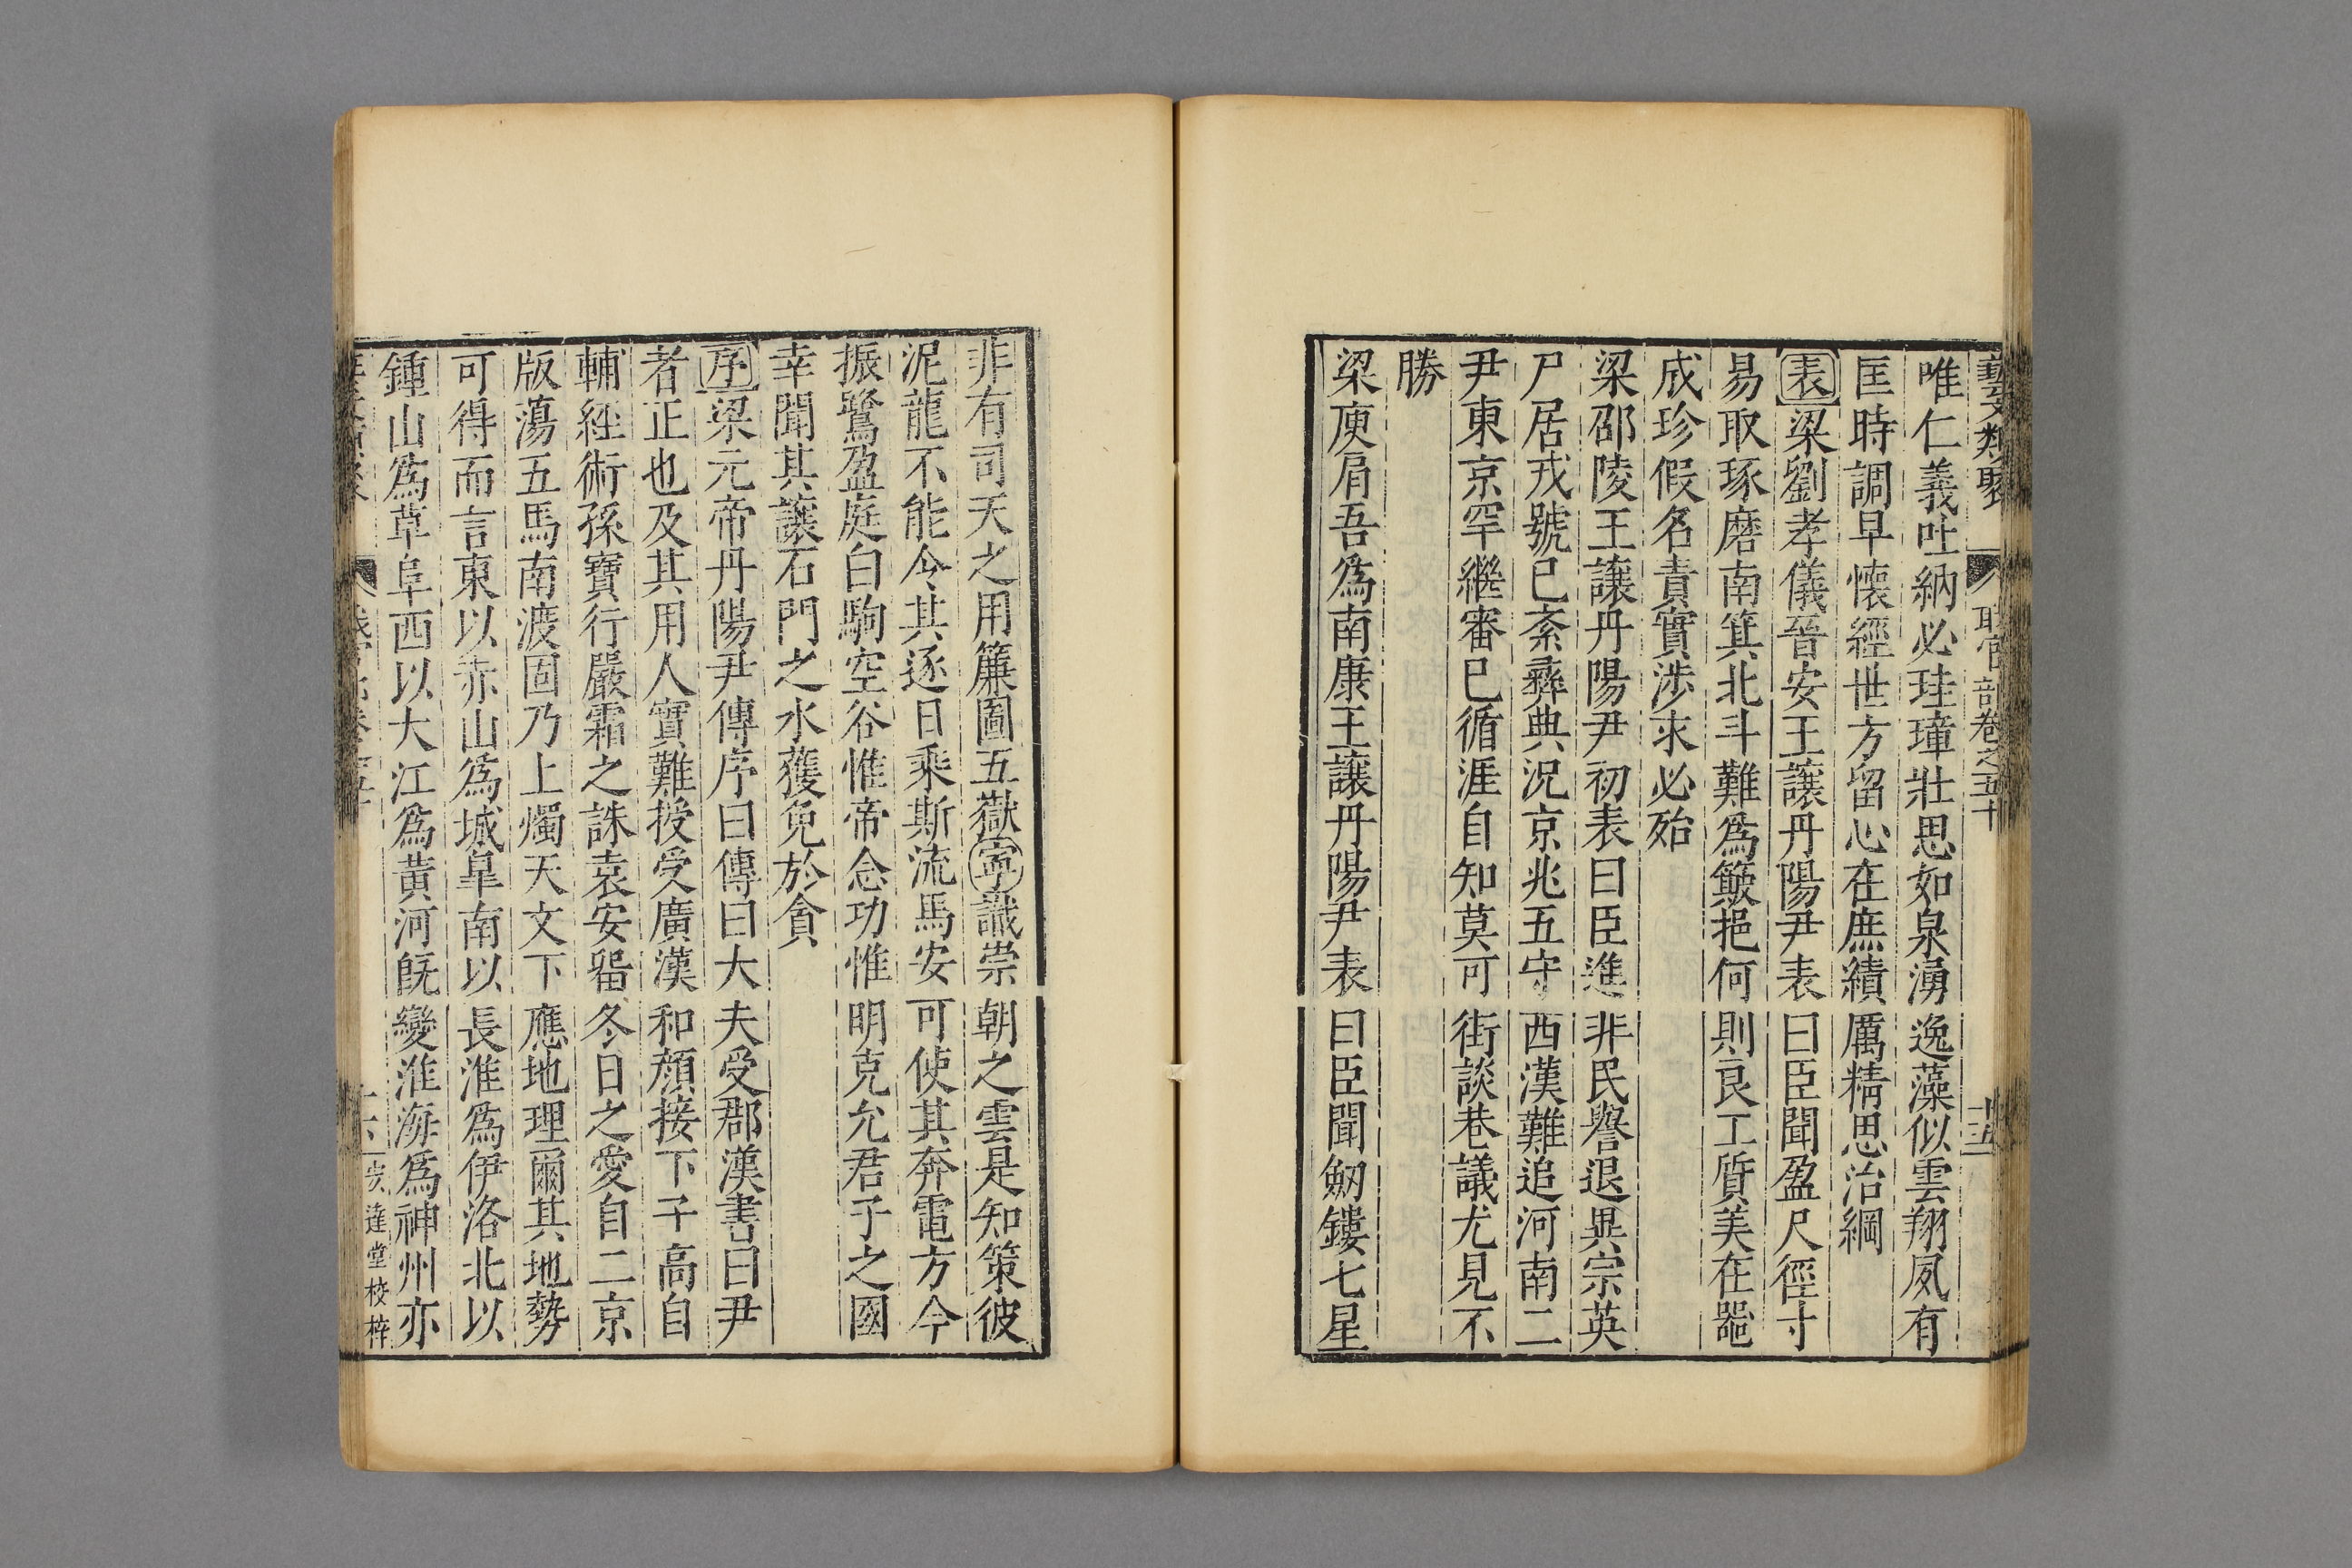 藝文類聚 職官部卷之五十 十五
唯仁義吐納必珪璋壯思如泉湧逸藻似雲翔夙有
匡時調早懷經世方留心在庶績厲精思治綱
表梁劉孝儀晉安王讓丹陽尹表曰臣聞盈尺徑寸
易取琢磨南箕北斗難爲簸挹何則良工質美在器
成珍假名責實涉求必殆
梁邵陵王讓丹陽尹初表曰臣進非民譽退異宗英
尸居戎號已紊彝典況京兆五守西漢難追河南二
尹東京罕繼審已循涯自知莫可街談巷議尤見不
勝
梁庾肩吾爲南康王讓丹陽尹表曰臣聞劒鏤七星
非有司天之用簾圖五嶽寧識崇朝之雲是知策彼
泥龍不能今其逐日乘斯流馬安可使其奔電方今
振鷺盈庭白駒空谷惟帝念功惟明克允君子之國
幸聞其讓石門之水獲免於貪
序梁元帝丹陽尹傳序曰傳曰大夫受郡漢書曰尹
者正也及其用人實難授受廣漢和顏接下子高自
輔經術孫寶行嚴霜之誅袁安留冬日之愛自二京
版蕩五馬南渡固乃上燭天文下應地理爾其地勢
可得而言東以赤山爲城皐南以長淮爲伊洛北以
鍾山爲草阜西以大江爲黃河旣變淮海爲神州亦
達堂校梓